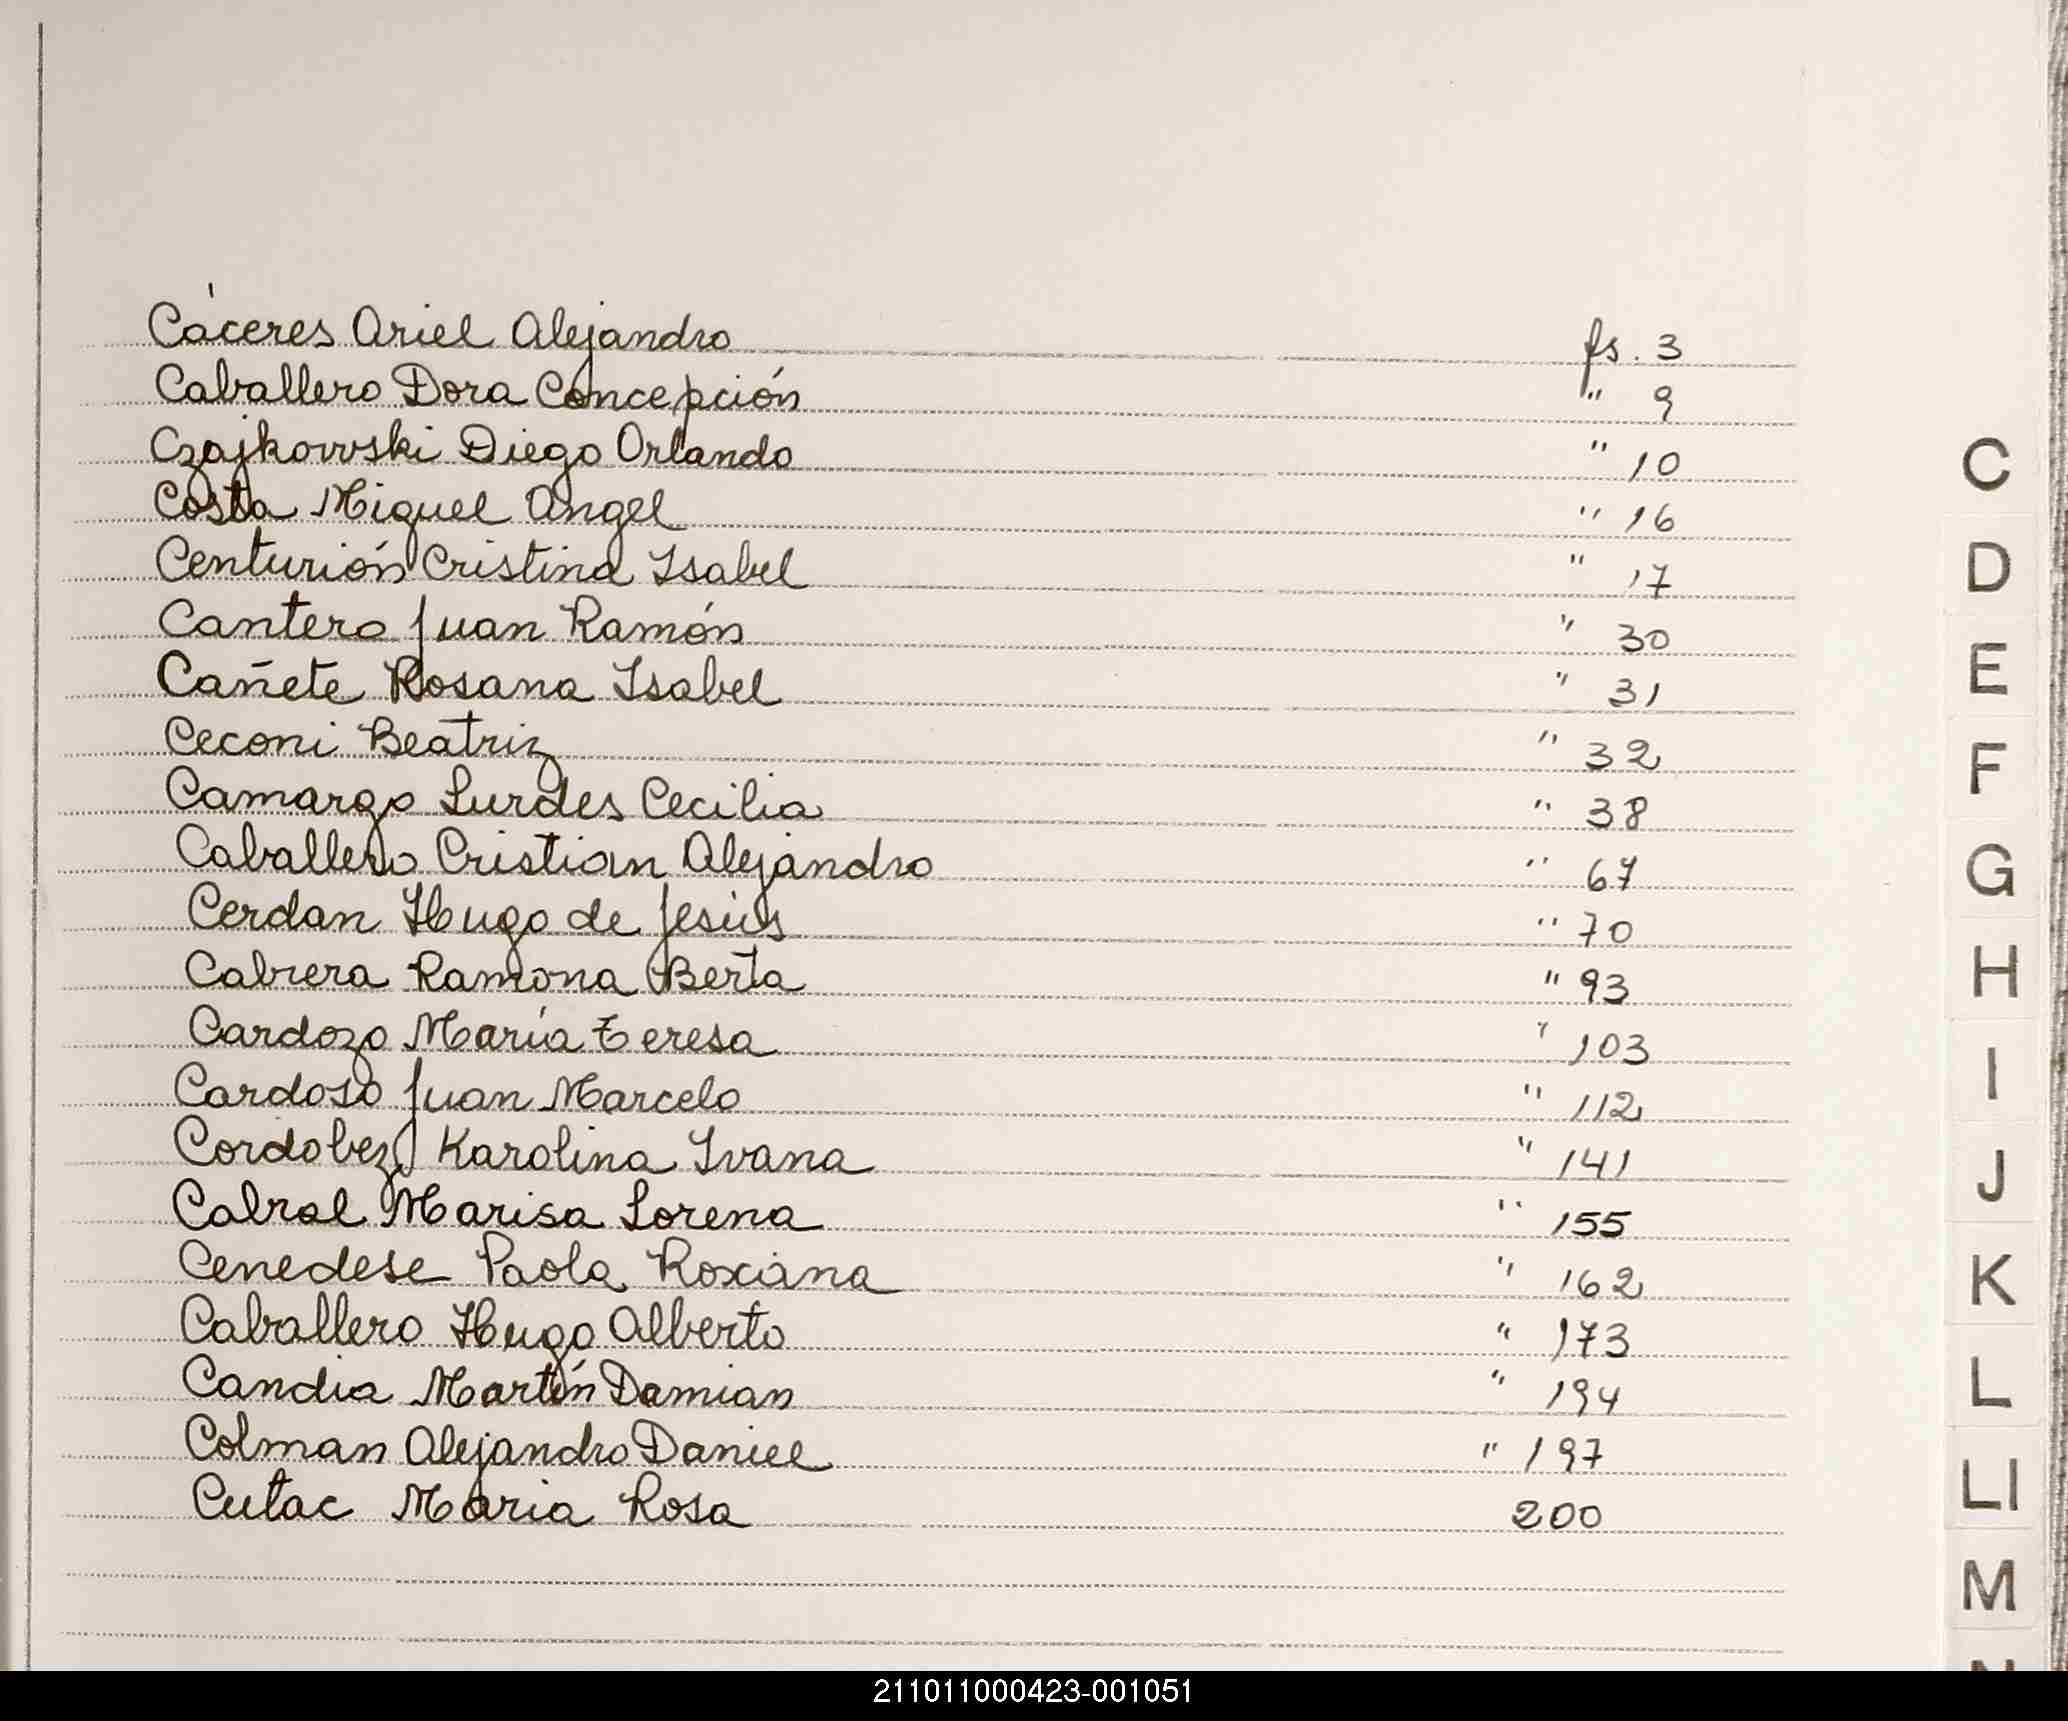 Cáceres Ariel Alejandro fs. 3
Caballero Dora Concepción " 9
Czajkowski Diego Orlando " 10
Costa Miguel Angel " 16
Centurión Cristina Isabel " 17
Cantero Juan Ramón " 30
Cañete Rosana Isabel " 31
Ceconi Beatriz " 32
Camargo Lurdes Cecilia " 38
Caballero Cristian Alejandro " 67
Cerdan Hugo de Jesús " 70
Cabrera Ramona Berta " 93
Cardozo María Teresa " 103
Cardoso Juan Marcelo " 112
Cordobez Karolina Ivana " 141
Cabral Marisa Lorena " 155
Cenedese Paola Roxana " 162
Caballero Hugo Alberto " 173
Candia Martín Damian " 194
Colman Alejandro Daniel " 197
Cutac Maria Rosa 200
C
D
E
F
G
H
I
J
K
L
Ll
M
211011000423-001051